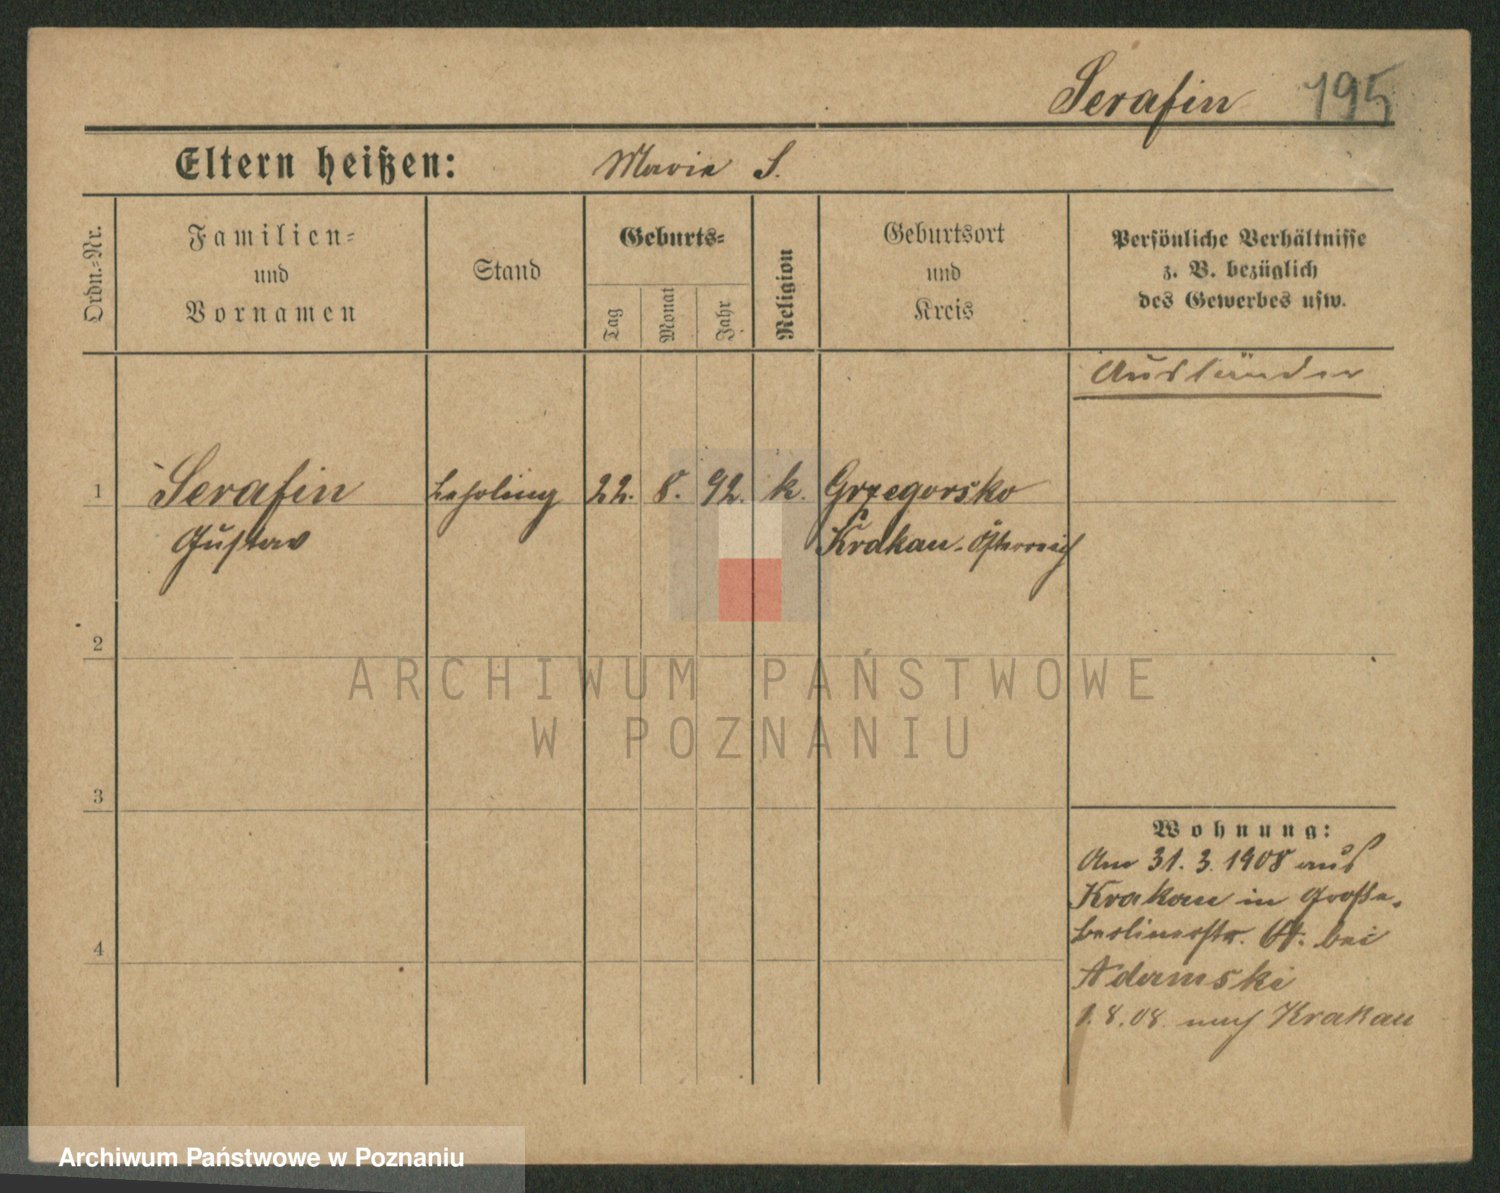 Serafin 195
Eltern heißen: Marie S.
Ordn.=Nr.
Familien=
und
Vornamen
Stand
Geburts=
Tag
Monat
Jahr
Religion
Geburtsort
und
Kreis
Persönliche Verhältnisse
z. B. bezüglich
des Gewerbes usw.
Ausländer
1 Serafin Lehrling 22. 8. 92. k. Grzegorsko
Gustav Krakau. Österreich
2
3
4
Wohnung:
Am 31.3.1908 aus
Krakau in Große.
Berlinerstr. bei
Adamski
1.8.08. nach Krakau
ARCHIWUM PAŃSTWOWE
W POZNANIU
Archiwum Państwowe w Poznaniu